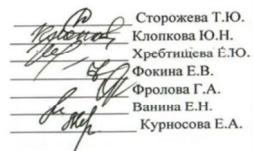 Сторожева Т.Ю.
Клопкова Ю.Н.
Хребтищева Е.Ю.
Фокина Е.В.
Фролова Г.А.
Ванина Е.Н.
Курносова Е.А.